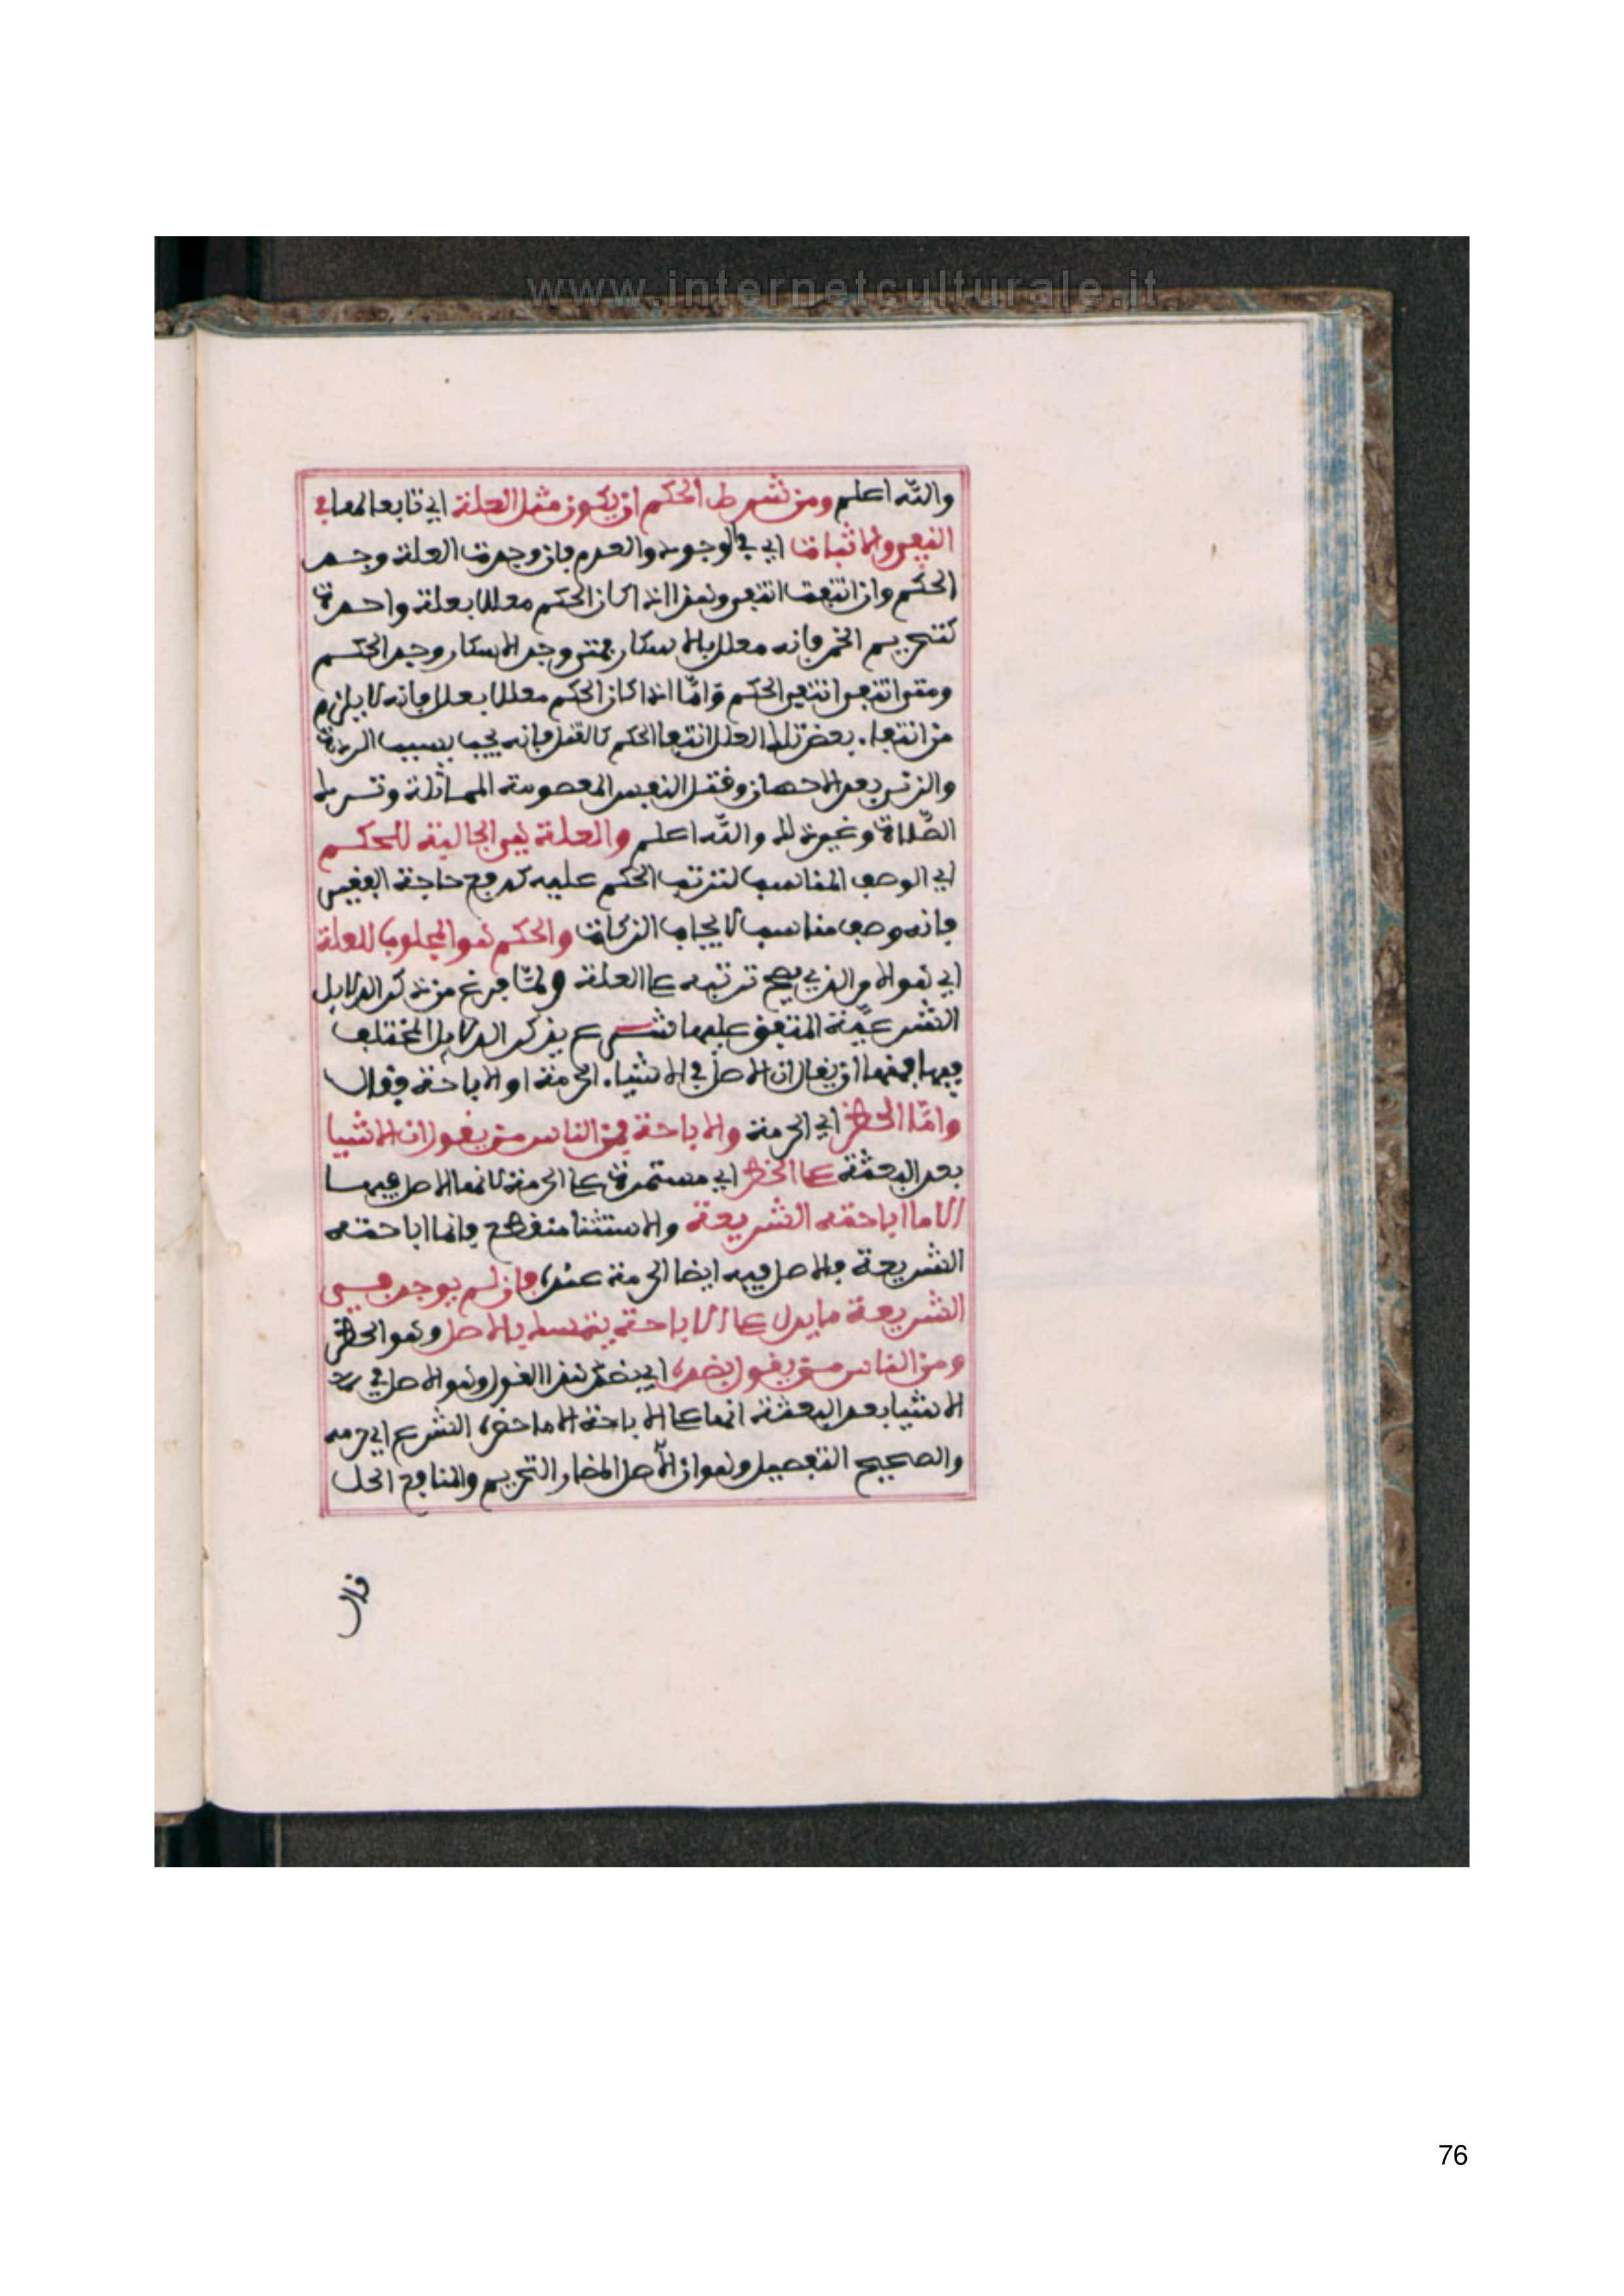 www.internetculturale.it
والله اعلم ومن شرط الحكم ان يكون مثل العلة اي تابعا لها في
النفي والاثبات اي في الوجود والعدم فان وجدت العلة وجد
الحكم وان انتفت انتفى وهذا اذا كان الحكم معللا بعلة واحدة
كتحريم الخمر فانه معلل بالاسكار فمتى وجد الاسكار وجد الحكم
ومتى انتفى انتفى الحكم وامّا اذا كان الحكم معللا بعلل فانه لا يلزم
من انتفاء بعض تلك العلل انتفا الحكم كالقتل فانه يجب بسبب الردة
والزنى بعد الاحصان وقتل النفس المعصومة المماثلة وترك
الصّلاة وغير ذلك والله اعلم والعلة هي الجالبة للحكم
اي الوصف المناسب لترتب الحكم عليه كدفع حاجة الفقير
فانه وصف مناسب لايجاب الزكاة والحكم هو المجلوب للعلة
اي هو الامر الذي يصح ترتبه على العلة ولمّا فرغ من ذكر الدلايل
الشرعيّة المتفق عليها شرع يذكر الدلايل المختلف
فيها فمنها ان يقال ان الاصل في الاشياء الحرمة او الاباحة فقال
وامّا الحظر اي الحرمة والاباحة فمن الناس من يقول ان الاشيا
بعد البعثة على الحظر اي مستمرة على الحرمة لانها الاصل فيها
الا ما اباحته الشريعة والاستثنا منقطع فانما اباحته
الشريعة فالاصل فيه ايضا الحرمة عنده فان لم يوجد في
الشريعة ما يدل على الاباحة يتمسك بالاصل وهو الحظر
ومن الناس من يقول بضده اي بضد هذا القول وهو الاصل في
الاشيا بعد البعثة انها على الاباحة الا ما حضره الشرع اي حرمه
والصحيح التفصيل وهو ان الاصل المضار التحريم والمنافع الحل
قال
76